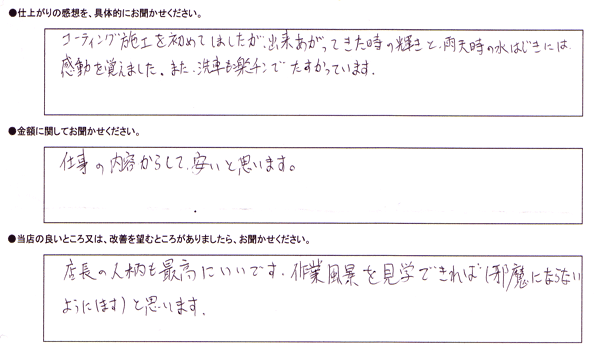 ●仕上がりの感想を、具体的にお聞かせください。
コーティング施工を初めてしましたが、出来あがってきた時の輝きと、雨天時の水はじきには
感動を覚えました。また、洗車も楽チンでたすかっています。
●金額に関してお聞かせください。
仕事の内容からして、安いと思います。
●当店の良いところ又は、改善を望むところがありましたら、お聞かせください。
店長の人柄も最高にいいです。作業風景を見学できれば(邪魔にならない
ようにはす)と思います。